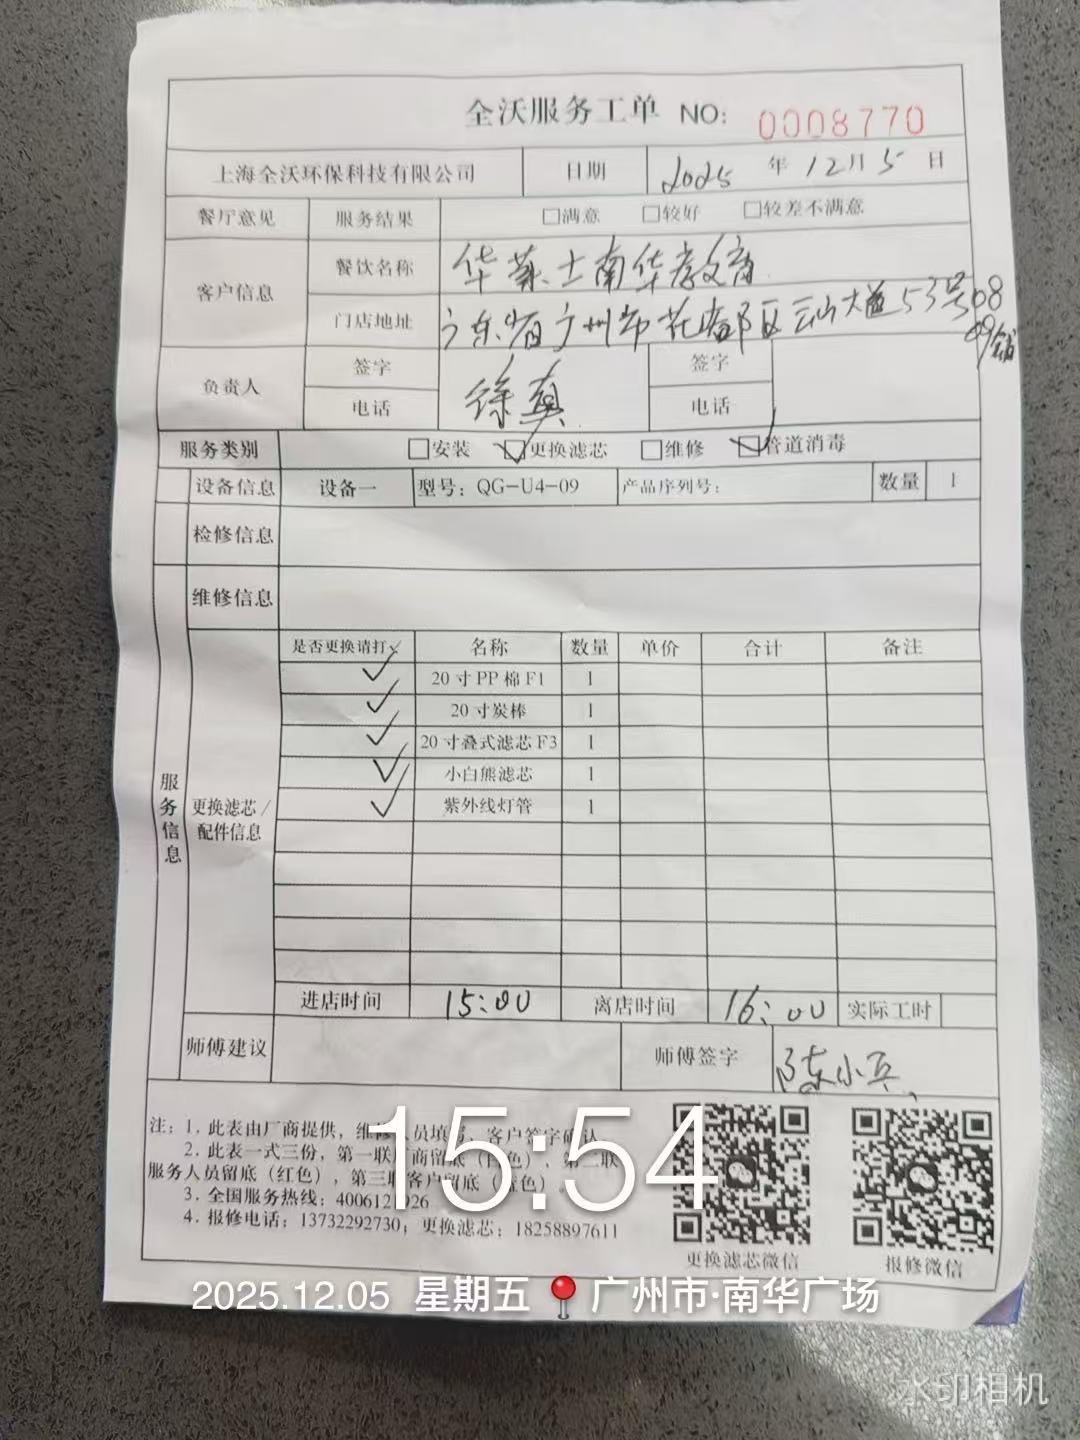 全沃服务工单 NO: 0008770
上海全沃环保科技有限公司 日期 2025 年 12月 5 日
餐厅意见 服务结果 □满意 □较好 □较差不满意
客户信息 餐饮名称 华莱士南华教育
门店地址 广东省广州市花都区云山大道53号08
09铺
负责人 签字 徐真 签字
电话 电话
服务类别 □安装 ☑更换滤芯 □维修 ☑管道消毒
设备信息 设备一 型号：QG-U4-09 产品序列号： 数量 1
检修信息
维修信息
是否更换请打✓ 名称 数量 单价 合计 备注
✓ 20寸PP棉F1 1
✓ 20寸炭棒 1
✓ 20寸叠式滤芯F3 1
✓ 小白熊滤芯 1
✓ 紫外线灯管 1
服务信息
更换滤芯/
配件信息
进店时间 15:00 离店时间 16:00 实际工时
师傅建议 师傅签字 陈小兵
注：1. 此表由厂商提供，维修 员填 ，客户签字确认
2. 此表一式三份，第一联 商留底（白色），第二联
服务人员留底（红色），第三联客户留底（ 色）
3. 全国服务热线：400612 926
4. 报修电话：13732292730；更换滤芯：18258897611
更换滤芯微信 报修微信
15:54
2025.12.05 星期五 广州市·南华广场
水印相机